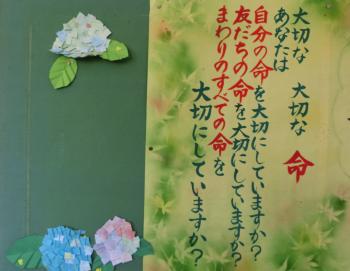 大切な 大切な 命
あなたは
自分の命を大切にしていますか?
友だちの命を大切にしていますか?
まわりのすべての命を
大切にしていますか?